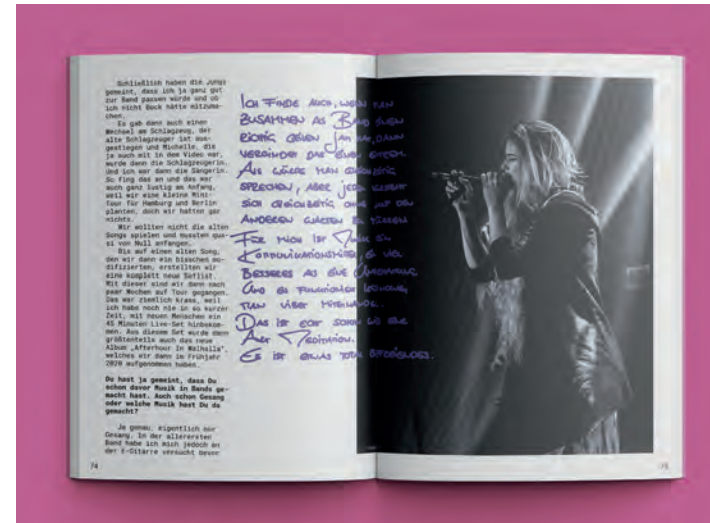 Schließlich haben die Jungs
gemeint, dass ich ja ganz gut
zur Band passen würde und ob
ich nicht Bock hätte mitzuma-
chen.
Es gab dann auch einen
Wechsel am Schlagzeug, der
alte Schlagzeuger ist aus-
gestiegen und Michelle, die
ja auch mit in dem Video war,
wurde dann die Schlagzeugerin.
Und ich war dann die Sängerin.
So fing das an und das war
auch ganz lustig am Anfang,
weil wir eine kleine Mini-
tour für Hamburg und Berlin
planten, doch wir hatten gar
nichts.
Wir wollten nicht die alten
Songs spielen und mussten qua-
si von Null anfangen.
Bis auf einen alten Song,
den wir dann ein bisschen mo-
difizierten, erstellten wir
eine komplett neue Setlist.
Mit dieser sind wir dann nach
paar Wochen auf Tour gegangen.
Das war ziemlich krass, weil
ich habe noch nie in so kurzer
Zeit, mit neuen Menschen ein
45 Minuten Live-Set hinbekom-
men. Aus diesem Set wurde dann
größtenteils auch das neue
Album „Afterhour In Walhalla“,
welches wir dann im Frühjahr
2020 aufgenommen haben.
Du hast ja gemeint, dass Du
schon davor Musik in Bands ge-
macht hast. Auch schon Gesang
oder welche Musik hast Du da
gemacht?
Ja genau, eigentlich nur
Gesang. In der allerersten
Band habe ich mich jedoch an
der E-Gitarre versucht bevor
74
Ich finde auch, wenn man
zusammen als Band einen
richtig geilen Jam hat, dann
verbindet das einen extrem.
Als würde man gleichzeitig
sprechen, aber jeder
sich gleichzeitig ohne auf den
anderen warten zu müssen
Für mich ist Musik ein
Kommunikationsmittel, so viel
besseres als eine
Und es funktioniert
nun über
Das ist echt schon wie eine
Art Meditation.
Es ist etwas total
75